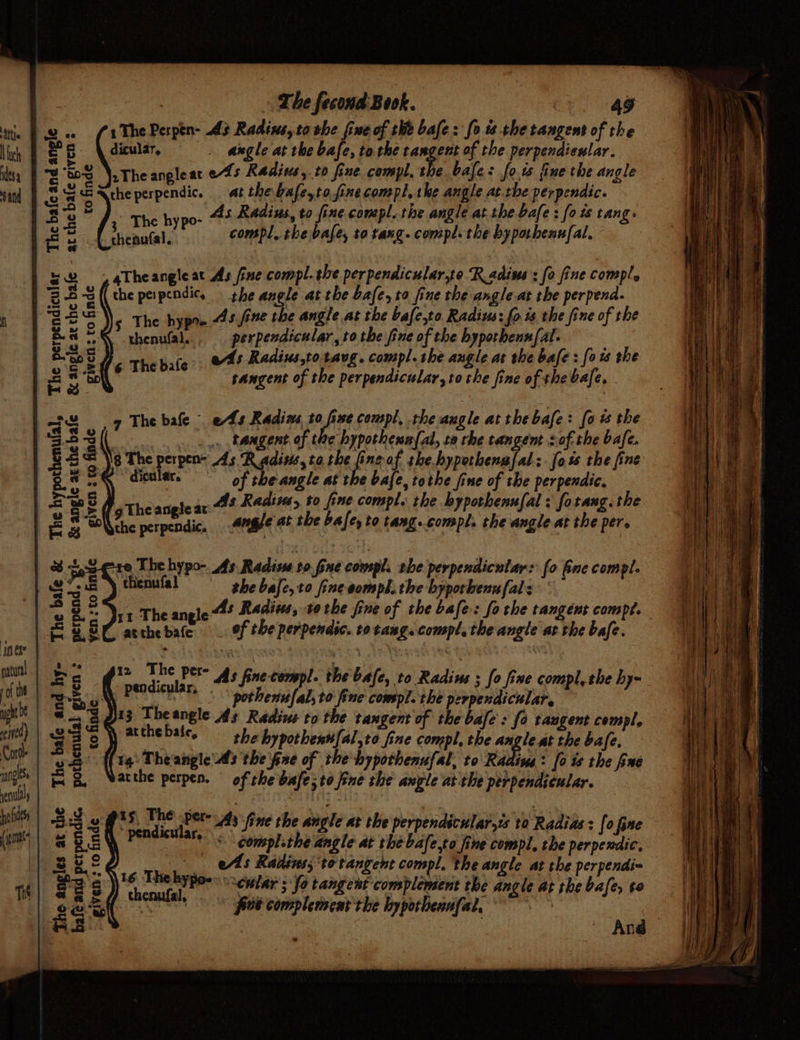 The ſecond Book. 49
The baſe and angle
at the baſe given:
to finde
1 The Perpen- As Radius, to the ſine of the baſe: ſo is the tangent of the
dicular, angle at the baſe, to the tangent of the perpendicular.
2 The angle at As Radius, to ſine compl. the baſe: ſo is ſine the angle
the perpendic. at the baſe, to ſine compl, the angle at the perpendic.
3 The hypo- As Radius, to ſine compl. the angle at the baſe: ſo is tang.
thenuſal. compl. the baſe, to tang. compl. the hypothenuſal.
The perpendicular
& angle at the baſe
given: to finde
4 The angle at As ſine compl. the perpendicular, to Radius: ſo ſine compl,
the perpendic, the angle at the baſe, to ſine the angle at the perpend.
5 The hypo- As ſine the angle at the baſe, to Radius: ſo is the ſine of the
thenuſal. perpendicular, to the ſine of the hypothenuſal.
6 The baſe As Radius, to tang. compl. the angle at the baſe: ſo is the
tangent of the perpendicular, to the ſine of the baſe.
The hypothenuſal,
& angle at the baſe
given: to finde
7 The baſe As Radius, to ſine compl, the angle at the baſe: ſo is the
tangent of the hypothenuſal, to the tangent of the baſe.
8 The perpen- As Radius, to the ſine of the hypothenuſal: ſo is the ſine
dicular. of the angle at the baſe, to the ſine of the perpendic.
9 The angle at As Radius, to ſine compl. the hypothenuſal: ſo tang. the
the perpendic. angle at the baſe, to tang. compl. the angle at the per.
The baſe &
perpend. gi-
ven: to finde
10 The hypo- As Radius to ſine compl. the perpendicular: ſo ſine compl.
thenuſal the baſe, to ſine compl. the hypothenuſal:
11 The angle As Radius, to the ſine of the baſe: ſo the tangent compl.
at the baſe of the perpendic. to tang. compl, the angle at the baſe.
The baſe and hy-
pothenuſal given:
to finde
12 The per- As ſine compl. the baſe, to Radius; ſo ſine compl, the hy-
pendicular, pothenuſal, to ſine compl. the perpendicular,
13 The angle As Radius to the tangent of the baſe: ſo tangent compl.
at the baſe, the hypothenuſal, to ſine compl, the angle at the baſe.
14 The angle As the ſine of the hypothenuſal, to Radius: ſo is the ſine
at the perpen. of the baſe; to ſine the angle at the perpendicular.
The angles at the
baſe and perpendic.
given: to finde
15 The per- As ſine the angle at the perpendicular, is to Radias: ſo ſine
pendicular, compl. the angle at the baſe, to ſine compl, the perpendic.
As Radius, to tangent compl. the angle at the perpendi-
16 The hypo- cular; ſo tangent complement the angle at the baſe, to
thenuſal, ſine complement the hypothenuſal,
And